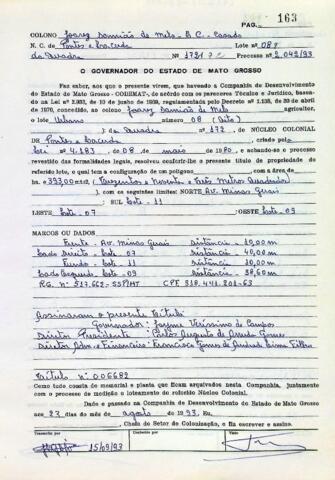 PAG. 163
COLONO Joarez Damião de Melo - B.C. Casado
N. C. de Pontes e Lacerda Lote nº 08
da Quadra Nº 172 Processo nº 2.042/93
O GOVERNADOR DO ESTADO DE MATO GROSSO
Faz saber, aos que o presente virem, que havendo a Companhia de Desenvolvimento
do Estado de Mato Grosso - CODEMAT-, de acôrdo com os pareceres Técnico e Jurídico, baseado
na Lei nº 2.933, de 10 de junho de 1939, regulamentada pelo Decreto nº 1.138, de 30 de abril
de 1970, concedido, ao colono Joarez Damião de Melo agricultor,
o lote Urbano número 08 (Oito)
) da Quadra Nº 172 DE NÚCLEO COLONIAL
DE Pontes e Lacerda, criado pela
Lei 4.187 de 08, de maio de 1980, e achando-se o processo
revestido das formalidades legais, resolveu conferir-lhe o presente título de propriedade do
referido lote, o qual tem a configuração de um polígono com a área de
hs. 393,00 m2 (Trezentos e Noventa e Três Metros Quadrados)
), com os seguintes limites: NORTE Av. Minas Gerais
; SUL Lote - 11
LESTE Lote - 07 ; OESTE Lote - 09
MARCOS OU DADOS
Frente - Av. Minas Gerais Distância - 10,00 m
Lado Direito - Lote - 07 Distância - 40,00 m
Fundo - Lote - 11 Distância - 10,00 m
Lado Esquerdo - Lote - 09 Distância - 38,60 m
RG. Nº 517.662-SSP/MT CPF 318.441.201-63
Assinaram o presente Título:
Governador: Jayme Veríssimo de Campos
Diretor Presidente: Carlos Augusto de Arruda Gomes
Diretor Adm. e Financeiro: Francisco Gomes de Andrade Lima Filho
Título nº 006682
Como tudo consta de memorial e planta que ficam arquivados nesta Companhia, juntamente
com o processo de medição e loteamento do referido Núcleo Colonial.
Dado e passado na Companhia de Desenvolvimento do Estado de Mato Grosso
aos 23 dias do mês de agosto de 1993. Eu,
, Chefe do Setor de Colonização, o fiz escrever e assino.
15/09/93